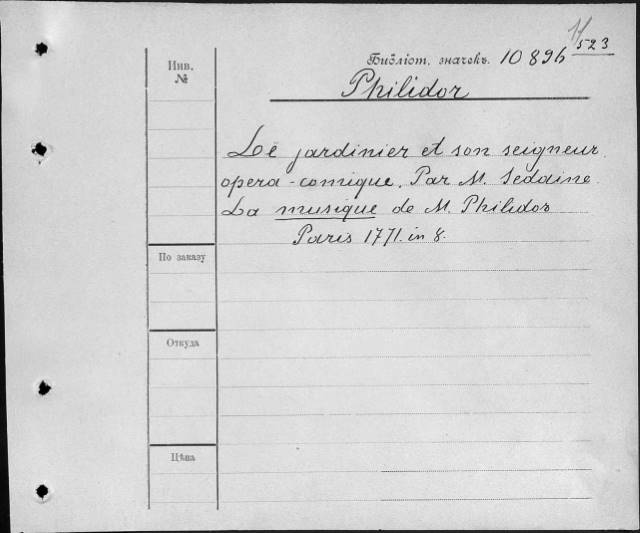 11/523
Библіот. значекъ. 10896
Инв.
№
Philidor
Le jardinier et son seigneur.
opera-comique. Par M. Seddine.
La musique de M. Philidor
Paris 1771. in 8.
По заказу
Откуда
Цѣна